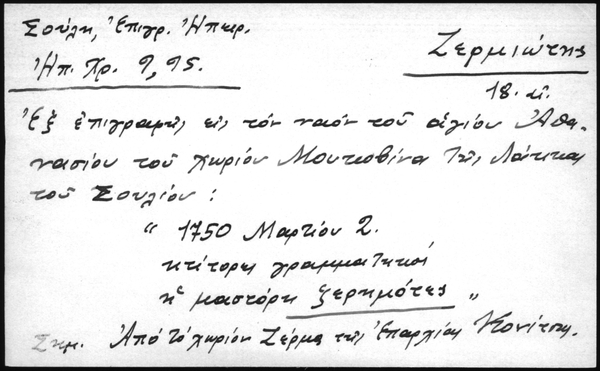 Σούλη, Ἐπιγρ. Ἠπειρ.
Ἠπ. Χρ. 9, 95.
Ζερμιώτης
18. αἰ.
Ἐξ ἐπιγραφῆς εἰς τὸν ναὸν τοῦ ἁγίου Ἀθα-
νασίου τοῦ χωρίου Μουτσοβίνα τῆς Λάκκας
τοῦ Σουλίου :
“ 1750 Μαρτίου 2.
κτίτορες γραμματικοί
κὲ μαστόρη ζερημότες „
Σημ. Ἀπὸ τὸ χωρίον Ζέρμα τῆς Ἐπαρχίας Κονίτσης.